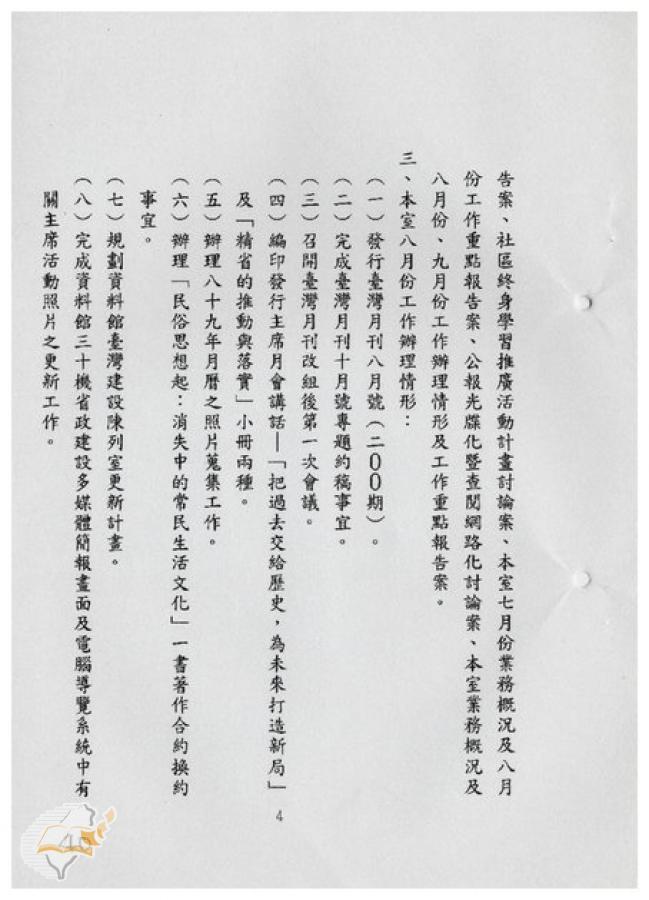 告案、社區終身學習推廣活動計畫討論案、本室七月份業務概況及八月
份工作重點報告案、公報光牒化暨查閱網路化討論案、本室業務概況及
八月份、九月份工作辦理情形及工作重點報告案。
三、本室八月份工作辦理情形：
（一）發行臺灣月刊八月號（二００期）。
（二）完成臺灣月刊十月號專題約稿事宜。
（三）召開臺灣月刊改組後第一次會議。
（四）編印發行主席月會講話—「把過去交給歷史，為未來打造新局」
及「精省的推動與落實」小冊兩種。
（五）辦理八十九年月曆之照片蒐集工作。
（六）辦理「民俗思想起：消失中的常民生活文化」一書著作合約換約
事宜。
（七）規劃資料館臺灣建設陳列室更新計畫。
（八）完成資料館三十機省政建設多媒體簡報畫面及電腦導覽系統中有
關主席活動照片之更新工作。
4